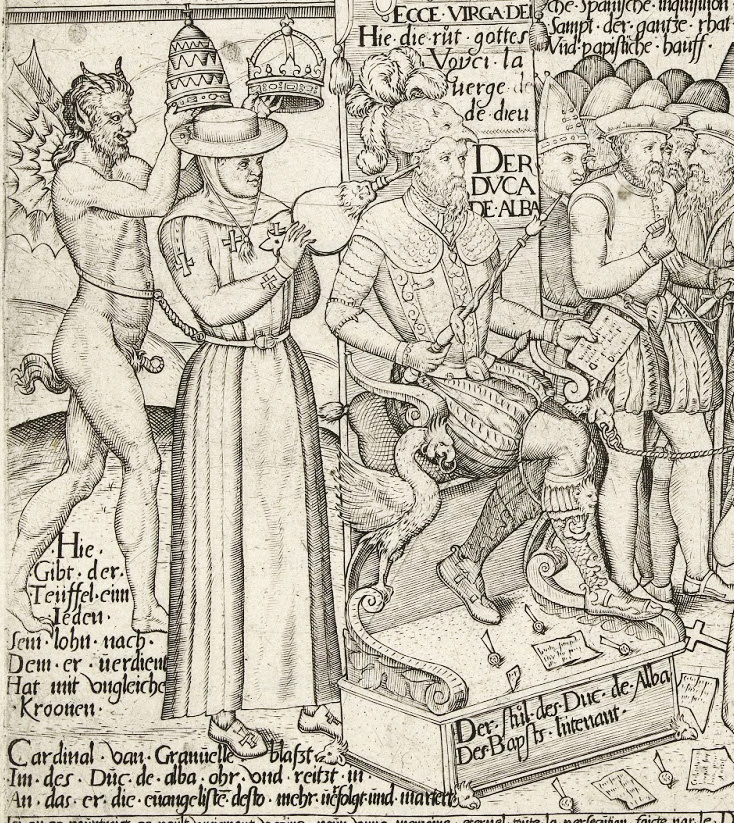 ECCE · VIRGA · DEI
Hie · die · rüt · gottes
Voyci · la
uerge · de
de · dieu
che · Spanische · inquisition
Sampt · der · gantze · rhat
Vnd · papistiche · hauff ·
DER
DVCA
DE · ALBA
Hie ·
Gibt · der ·
Teüffel · ein
Ieden ·
Sein · lohn · nach ·
Dem · er · uerdient
Hat · mit · vngleiche
· Kroonen ·
Cardinal · van · Granuelle · blaßt ·
Im · des · Duc · de · alba · ohr · vnd · reitzt · in
An · das · er · die · eüangelistē · desto · mehr · uēfolgt · und · martert
Der · stul · des · Duc · de · Alba
Des · Bapsts · lütenant ·